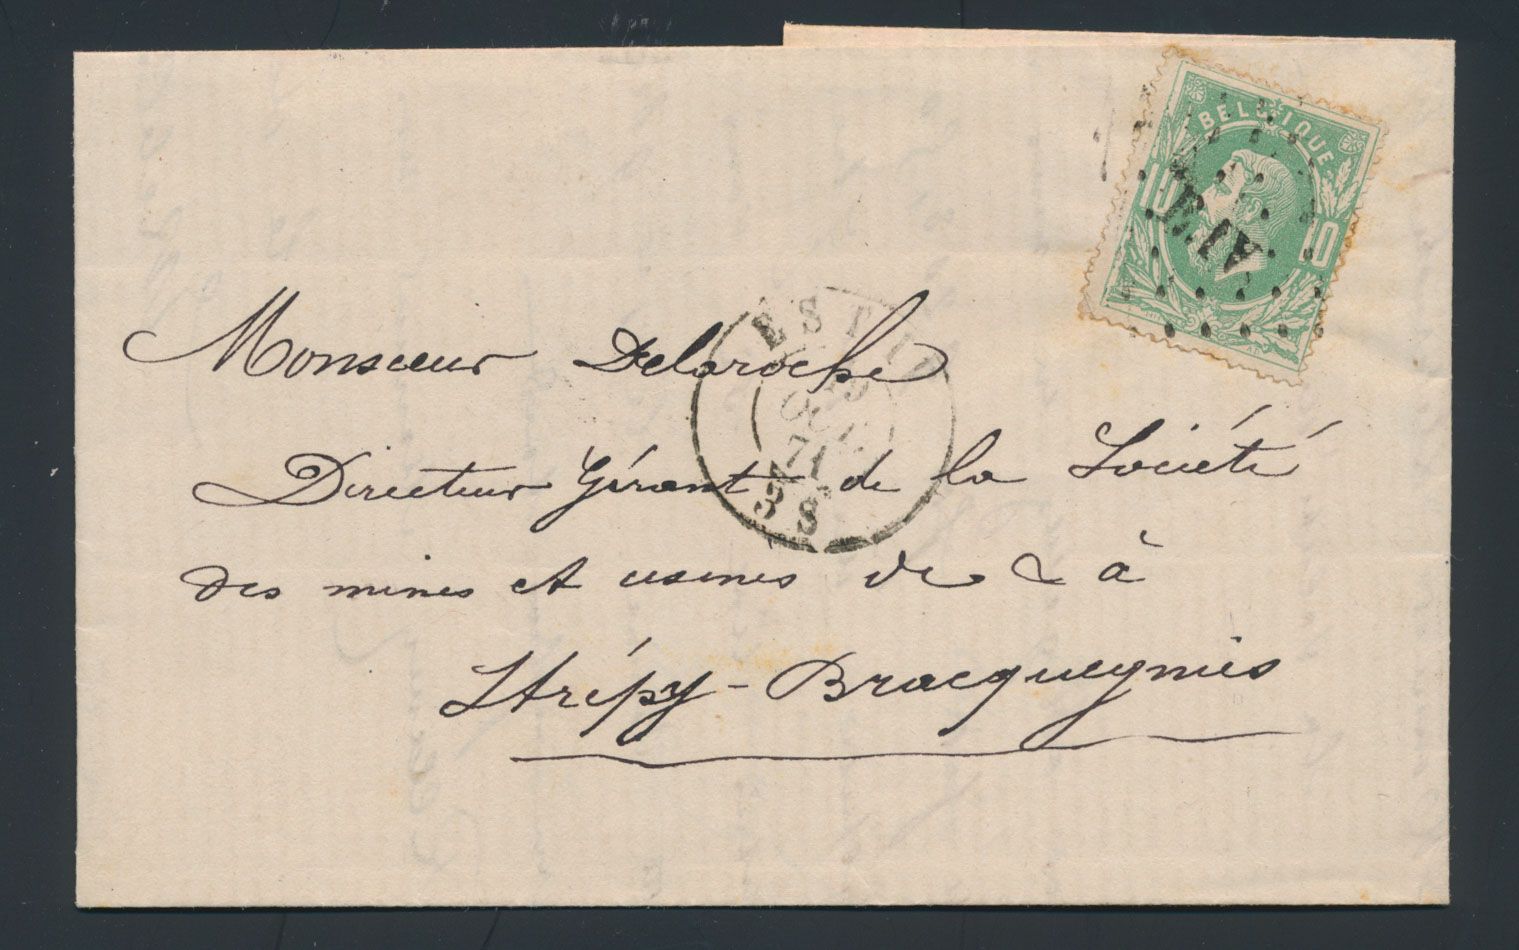 BELGIQUE
E.IV
EST IV
OCT
71
3 S
Monsieur Delaroche
Directeur Gérant de la Société
des mines et usines de & à
Strépy-Bracquegnies